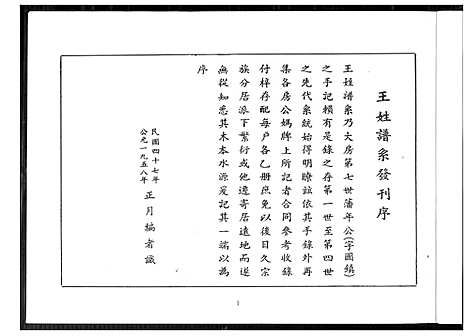 王姓譜系發刊序
王姓譜系乃大房第七世藩年公(字國鎮)
之手記賴有是錄之存第一世至第四世
之先代系統始得明瞭茲依其手錄外再
集各房公媽牌上所記者合同參考收錄
付梓存配每戶各乙冊庶免以後日久宗
族分居派下繁衍或他遷寄居遠地而遂
無從知悉其木本水源爰記其一端以為
序
民國四十七年
公元一九五八年
正月編者識
1